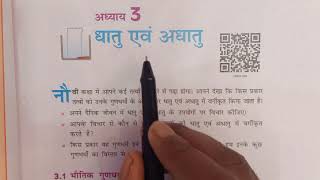 अध्याय 3
धातु एवं अधातु
नौवीं कक्षा में आपने कई तत्वों के बारे में पढ़ा होगा। आपने देखा कि किस प्रकार
तत्वों को उनके गुणधर्म के आधार पर धातु एवं अधातु में वर्गीकृत किया जाता है।
अपने दैनिक जीवन में धातु एवं अधातु के उपयोगों पर विचार कीजिए।
आपके विचार में कौन से धातु एवं अधातु में वर्गीकृत
करते हैं?
किस प्रकार यह गुणधर्म हम इनके कुछ
गुणधर्मों का विस्तार से
3.1 भौतिक गुणधर्म